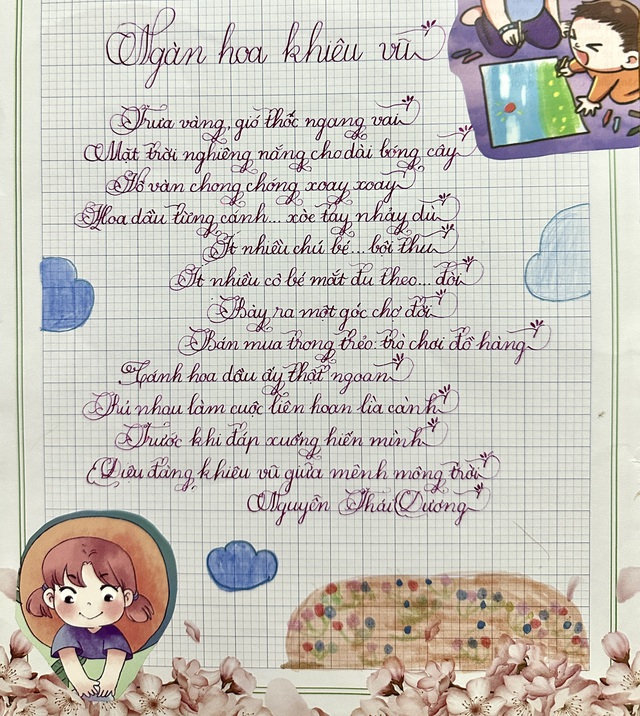 Ngàn hoa khiêu vũ
Trưa vàng, gió thốc ngang vai
Mặt trời nghiêng nắng cho dài bóng cây
Hồ vàn chong chóng xoay xoay
Hoa dầu từng cánh... xòe tay nhảy dù
Ít nhiều chú bé... bội thu
Ít nhiều cô bé mắt đu theo... đòi
Bày ra một góc chợ đời
Bán mua trong trẻo: trò chơi đồ hàng
Cánh hoa dầu ấy thật ngoan
Rủ nhau làm cuộc liên hoan lìa cành
Trước khi đáp xuống hiến mình
Dịu dàng khiêu vũ giữa mênh mông trời
Nguyễn Thái Dương